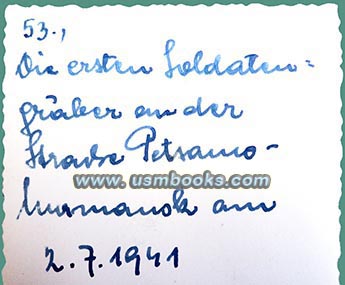 53.,
Die ersten Soldaten=
gräber an der
Strasse Petsamo-
www.usmbooks.com
Murmansk am
2.7.1941